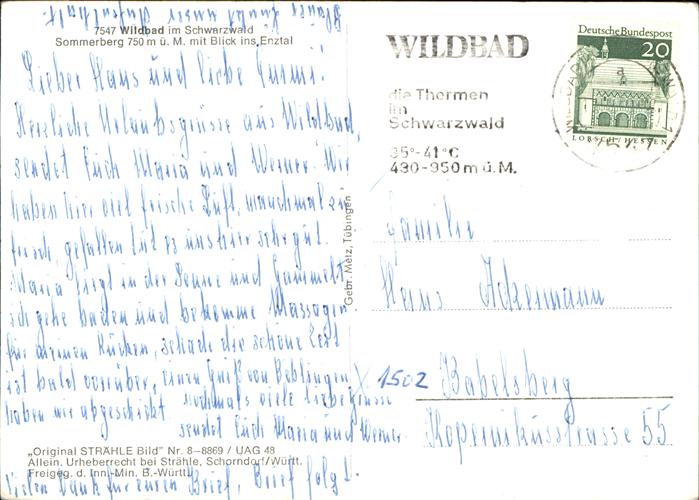 7547 Wildbad im Schwarzwald
Sommerberg 750 m ü. M. mit Blick ins Enztal
Lieber Hans und liebe
Herzliche Urlaubsgrüsse aus Wildbad,
sendet Euch Maria und Werner. Wir
haben hier viel frische Luft, manchmal zu
frisch, gefallen tut es uns hier sehr gut.
Maria liegt in der Sonne und Gammelt
ich gehe baden und bekomme Massagen
für meinen Rücken, schade die schöne Zeit
ist bald vorrüber, einen Gruß von Böblingen
haben wir abgeschickt nochmals viele liebe Grüsse
sendet Euch Maria und Werner
„Original STRÄHLE Bild" Nr. 8–8869 / UAG 48
Allein. Urheberrecht bei Strähle, Schorndorf/Württ.
Freigeg. d. Inn.-Min. B.-Württ.
Vielen Dank für euren Brief, Brief folgt.
Gebr. Metz, Tübingen
WILDBAD
die Thermen
im
Schwarzwald
35°-41°C
430-950m ü. M.
Deutsche Bundespost
20
LORSCH/HESSEN
Familie
Hans Ackermann
1502 Babelsberg
Kopernikusstrasse 55